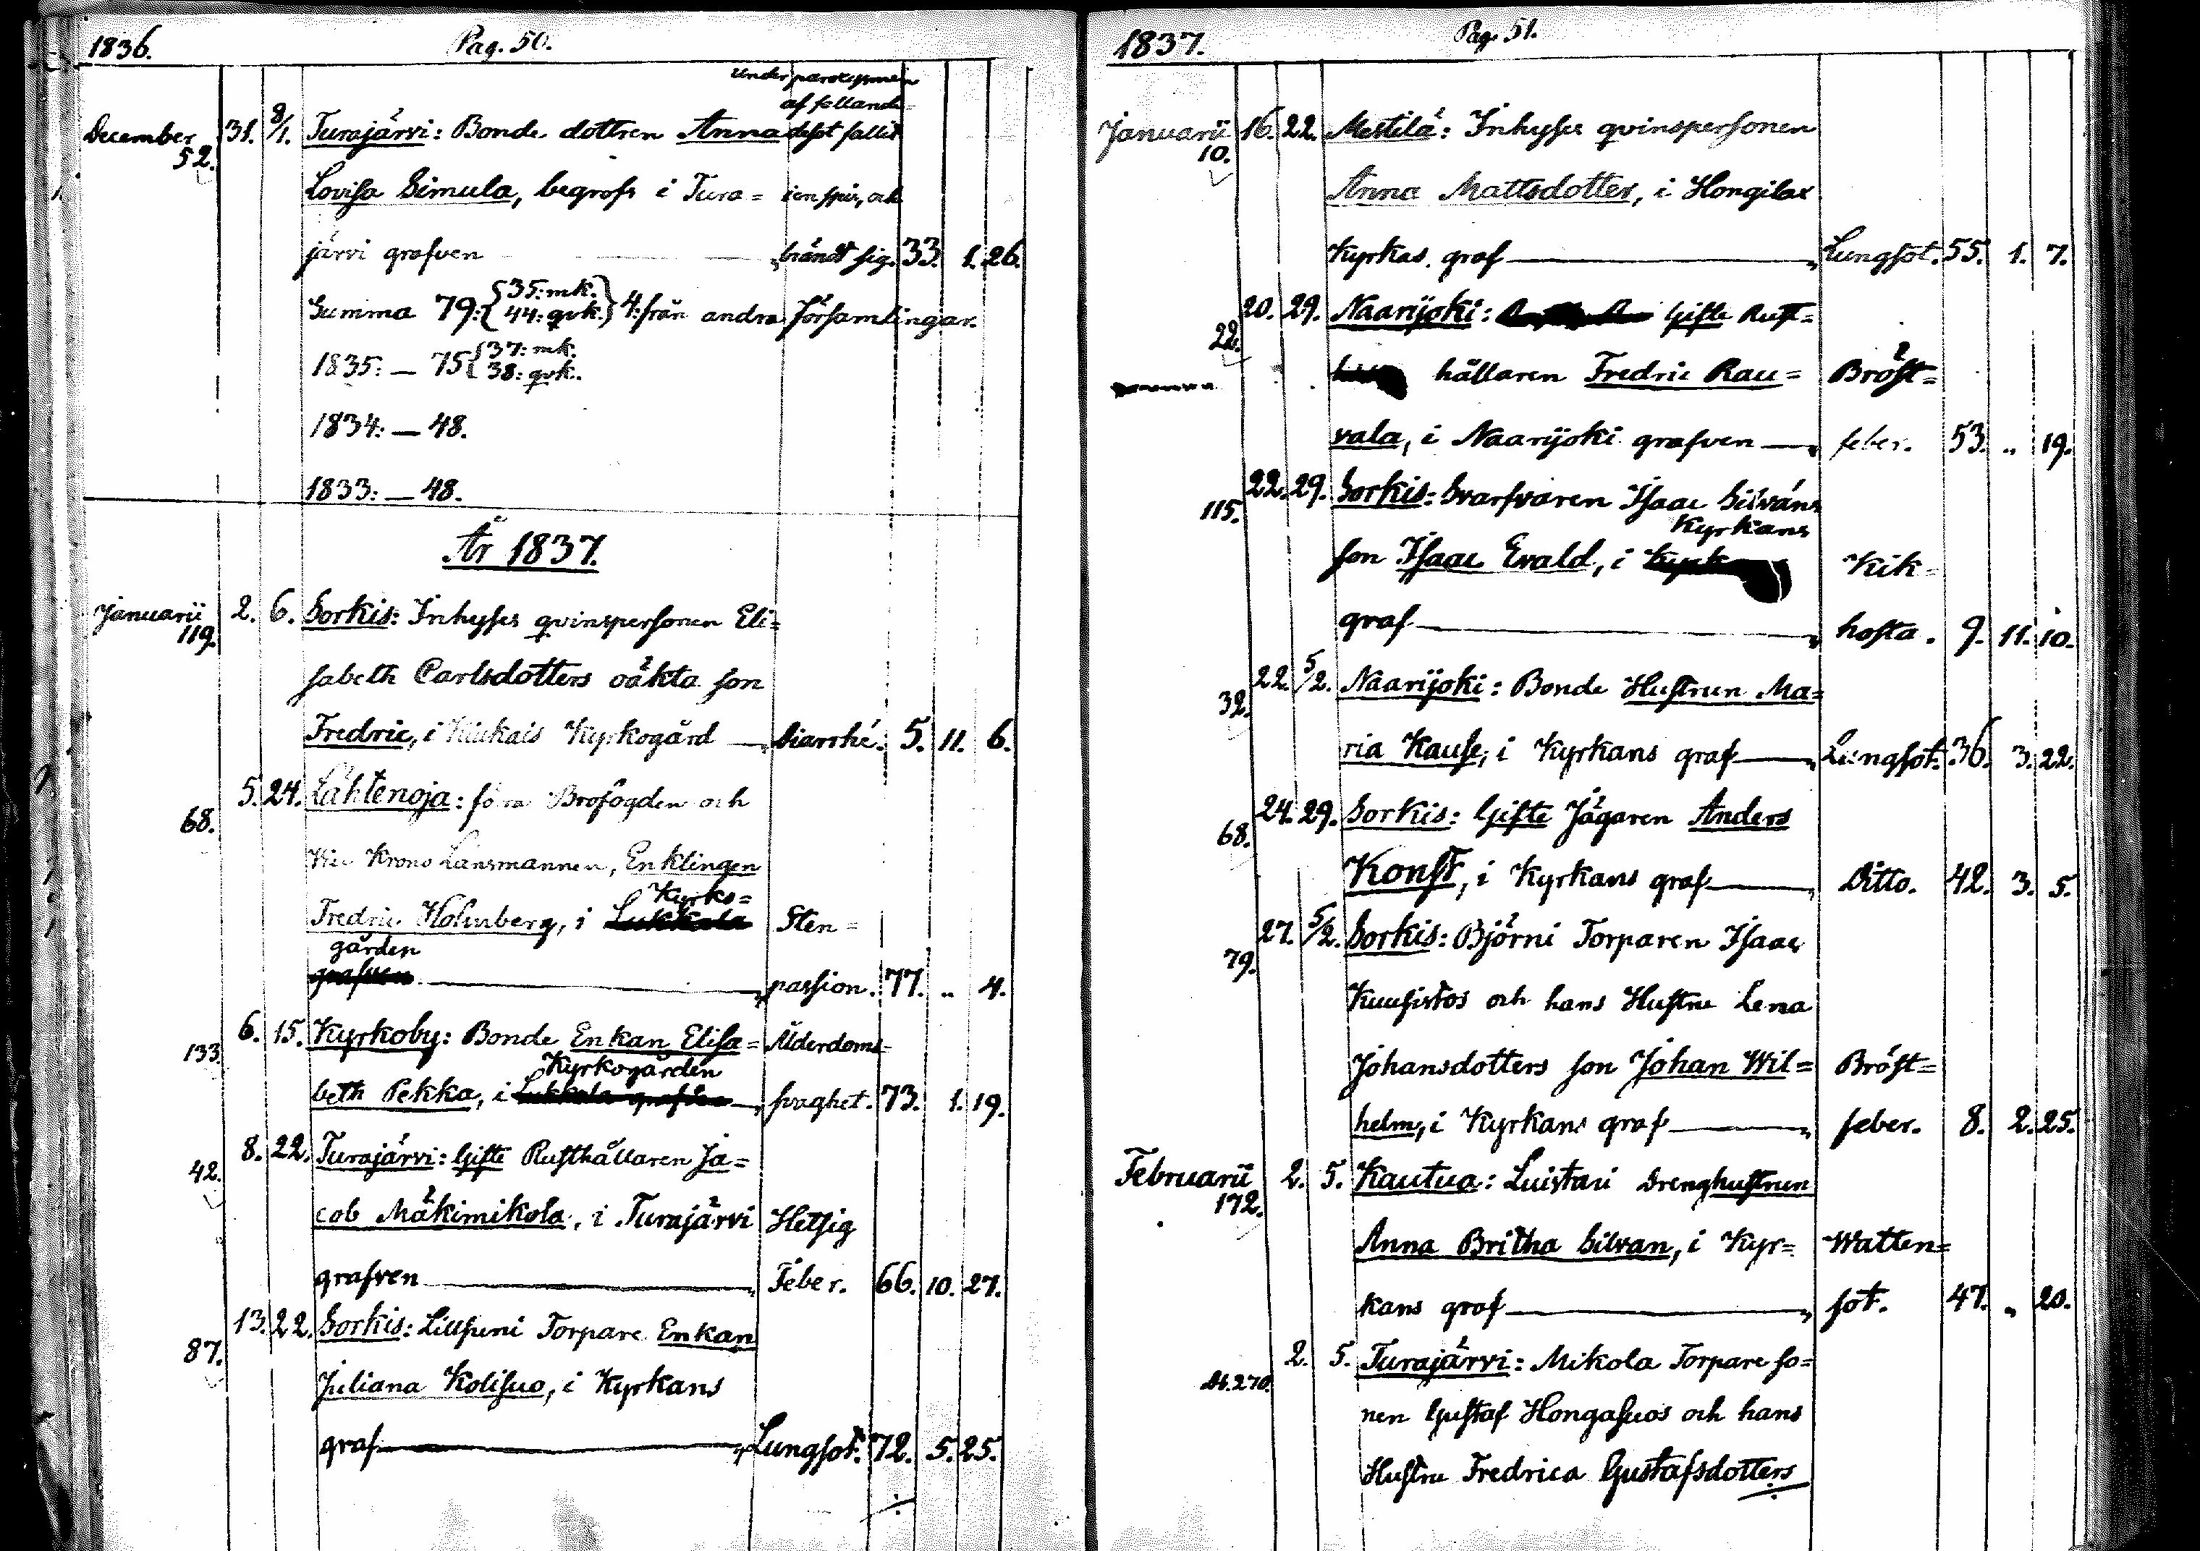 1836. Pag. 50.
Under paroxysmen
af fallande=
December 31. 8/1. Turajärvi: Bonde dottren Anna desot fallit
52.
Lovisa Simula, begrafs i Tura= i en spis, och
järvi grafven brändt sig. 33. 1. 26.
Summa 79: {35: mk. 44: qvk.} 4: från andra Församlingar.
1835: — 75 {37: mk. 38: qvk.
1834: — 48.
1833: — 48.
År 1837.
Januarii 2. 6. Sorkis: Inhyses qvinspersonen Eli=
119.
sabeth Carlsdotters oäkta son
Fredric, i Kiukais Kyrkogård Diarrhé. 5. 11. 6.
5. 24. Lähtenoja: förra Brofogden och
68.
Vice Krono Länsmannen, Enklingen
Kyrko=
Fredric Holmberg, i Lukkala Sten=
gården
grafven passion. 77. .. 4.
6. 15. Kyrkoby: Bonde Enkan Elisa= Ålderdoms=
133.
Kyrkogården
beth Pekka, i Lukkala grafven svaghet. 73. 1. 19.
8. 22. Turajärvi: Gifte Rusthållaren Ja=
42.
cob Mäkimikola, i Turajärvi Hetsig
grafven Feber. 66. 10. 27.
13. 22. Sorkis: Lillsuni Torpare Enkan
87.
Juliana Kolisuo, i Kyrkans
graf Lungsot. 72. 5. 25.
1837. Pag. 51.
Januarii 16. 22. Mestilä: Inhyses qvinspersonen
10.
Anna Mattsdotter, i Hongilax
Kyrkas graf Lungsot. 55. 1. 7.
20. 29. Naarijoki: Gifte Rust=
22.
hållaren Fredric Rau= Bröst=
vala, i Naarijoki grafven feber. 53. .. 19.
22. 29. Sorkis: Svarfvaren Isaac Silváns
115.
Kyrkans
son Isaac Evald, i Kyrk Kik=
graf hosta. 9. 11. 10.
22. 5/2. Naarijoki: Bonde Hustrun Ma=
32.
ria Kause, i Kyrkans graf Lungsot. 36. 3. 22.
24. 29. Sorkis: Gifte Jägaren Anders
68.
Konst, i Kyrkans graf Ditto. 42. 3. 5.
27. 5/2. Sorkis: Björni Torparen Isaac
79.
Kuusistos och hans Hustru Lena
Johansdotters son Johan Wil= Bröst=
helm, i Kyrkans graf feber. 8. 2. 25.
Februarii 2. 5. Kautua: Luistari Drenghustrun
172.
Anna Britha Silvan, i Kyr= Watten=
kans graf sot. 47. „ 20.
2. 5. Turajärvi: Mikola Torpare so=
270.
nen Gustaf Hongasuos och hans
Hustru Fredrica Gustafsdotters